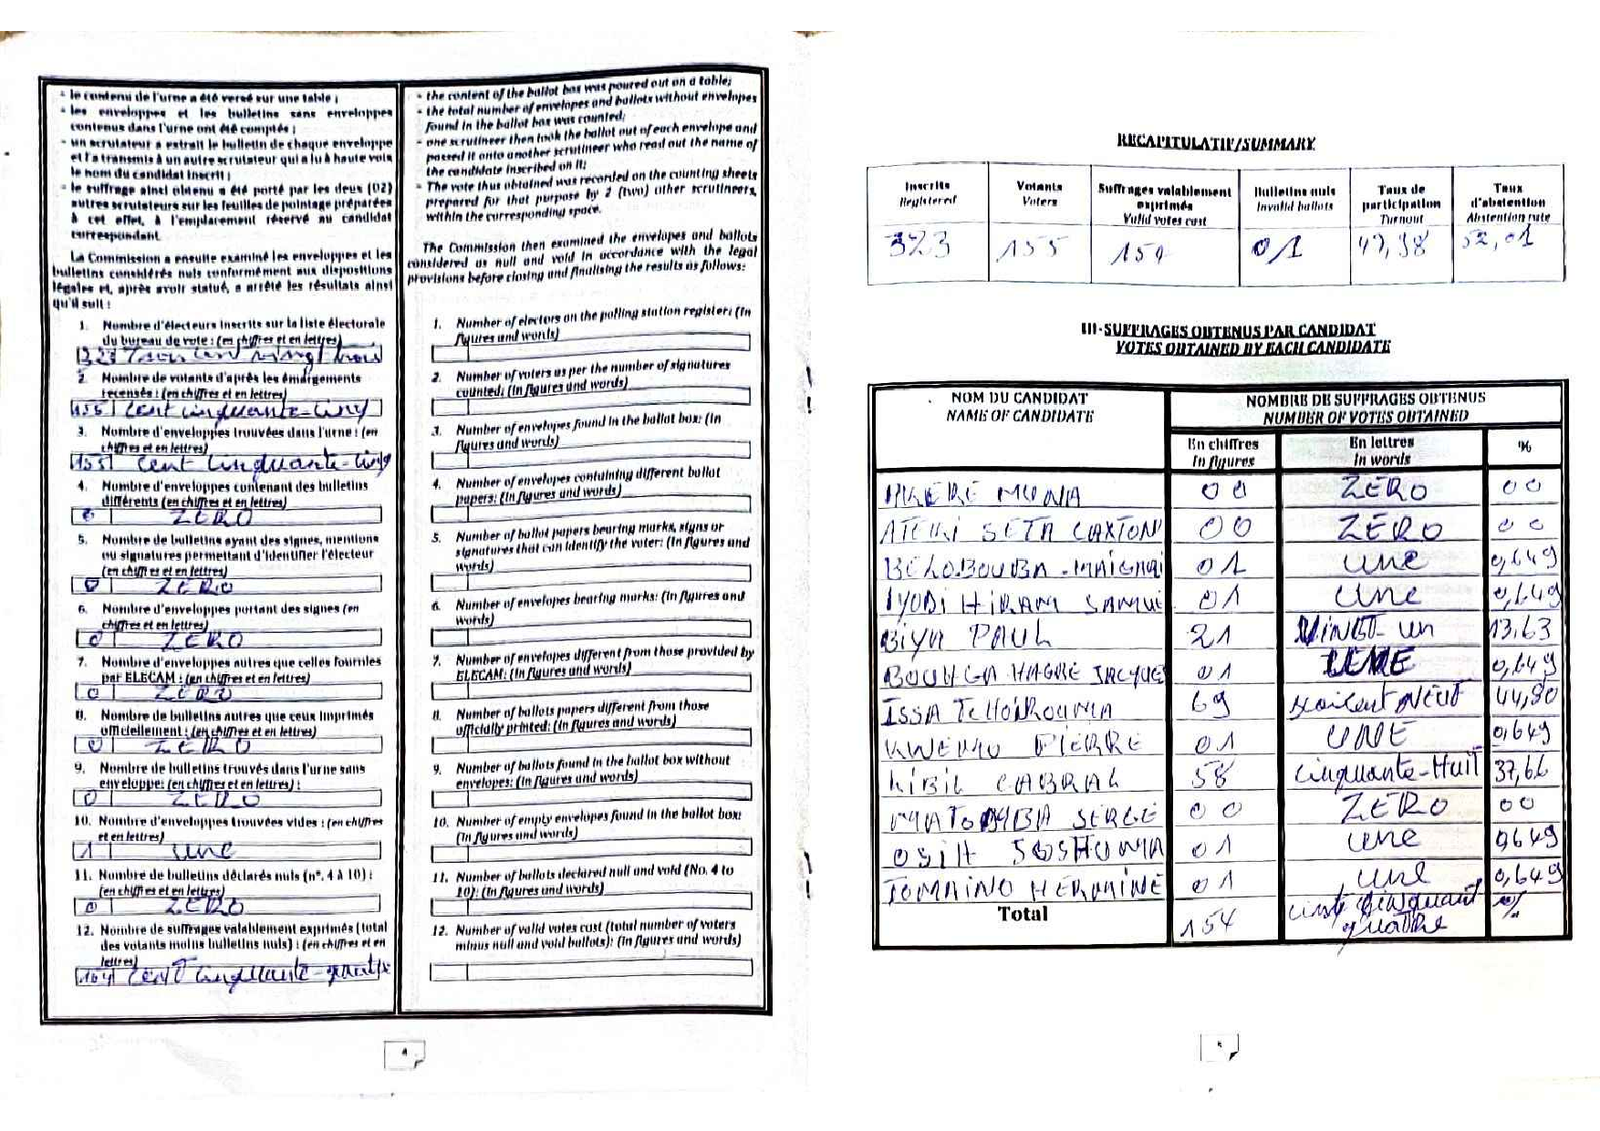 - le contenu de l'urne a été versé sur une table ;
- les enveloppes et les bulletins sans enveloppes
contenus dans l'urne ont été comptés ;
- un scrutateur a extrait le bulletin de chaque enveloppe
et l'a transmis à un autre scrutateur qui a lu à haute voix
le nom du candidat inscrit ;
- le suffrage ainsi obtenu a été porté par les deux (02)
autres scrutateurs sur les feuilles de pointage préparées
à cet effet, à l'emplacement réservé au candidat
correspondant.
La Commission a ensuite examiné les enveloppes et les
bulletins considérés nuls conformément aux dispositions
légales et, après avoir statué, a arrêté les résultats ainsi
qu'il suit :
1. Nombre d'électeurs inscrits sur la liste électorale
du bureau de vote : (en chiffres et en lettres)
323 Trois cent vingt trois
2. Nombre de votants d'après les émargements
recensés : (en chiffres et en lettres)
155 Cent cinquante-cinq
3. Nombre d'enveloppes trouvées dans l'urne : (en
chiffres et en lettres)
155 Cent cinquante-cinq
4. Nombre d'enveloppes contenant des bulletins
différents (en chiffres et en lettres)
0 ZERO
5. Nombre de bulletins ayant des signes, mentions
ou signatures permettant d'identifier l'électeur
(en chiffres et en lettres)
0 ZERO
6. Nombre d'enveloppes portant des signes (en
chiffres et en lettres)
0 ZERO
7. Nombre d'enveloppes autres que celles fournies
par ELECAM : (en chiffres et en lettres)
0 ZERO
8. Nombre de bulletins autres que ceux imprimés
officiellement : (en chiffres et en lettres)
0 ZERO
9. Nombre de bulletins trouvés dans l'urne sans
enveloppe: (en chiffres et en lettres) :
0 ZERO
10. Nombre d'enveloppes trouvées vides : (en chiffres
et en lettres)
1 une
11. Nombre de bulletins déclarés nuls (n°. 4 à 10) :
(en chiffres et en lettres)
0 ZERO
12. Nombre de suffrages valablement exprimés (total
des votants moins bulletins nuls) : (en chiffres et en
lettres)
Cent cinquante-quatre
4
- the content of the ballot box was poured out on a table;
- the total number of envelopes and ballots without envelopes
found in the ballot box was counted;
- one scrutineer then took the ballot out of each envelope and
passed it onto another scrutineer who read out the name of
the candidate inscribed on it;
- The vote thus obtained was recorded on the counting sheets
prepared for that purpose by 2 (two) other scrutineers,
within the corresponding space.
The Commission then examined the envelopes and ballots
considered as null and void in accordance with the legal
provisions before closing and finalising the results as follows:
1. Number of electors on the polling station register: (In
figures and words)
2. Number of voters as per the number of signatures
counted: (In figures and words)
3. Number of envelopes found in the ballot box: (In
figures and words)
4. Number of envelopes containing different ballot
papers: (In figures and words)
5. Number of ballot papers bearing marks, signs or
signatures that can identify the voter: (In figures and
words)
6. Number of envelopes bearing marks: (In figures and
words)
7. Number of envelopes different from those provided by
ELECAM: (In figures and words)
8. Number of ballots papers different from those
officially printed: (In figures and words)
9. Number of ballots found in the ballot box without
envelopes: (In figures and words)
10. Number of empty envelopes found in the ballot box:
(In figures and words)
11. Number of ballots declared null and void (No. 4 to
10): (In figures and words)
12. Number of valid votes cost (total number of voters
minus null and void ballots): (In figures and words)
RECAPITULATIF/SUMMARY
Inscrits Votants Suffrages valablement exprimés Bulletins nuls Taux de participation Taux d'abstention
Registered Voters Valid votes cost Invalid ballots Turnout Abstention rate
323 155 154 01 47,98 52,01
III-SUFFRAGES OBTENUS PAR CANDIDAT
VOTES OBTAINED BY EACH CANDIDATE
NOM DU CANDIDAT NOMBRE DE SUFFRAGES OBTENUS
NAME OF CANDIDATE NUMBER OF VOTES OBTAINED
En chiffres En lettres %
In figures In words
AKERE MUNA 00 ZERO 00
ATEKI SETA CAXTON 00 ZERO 00
BELO BOUBA MAIGARI 01 une 0,649
IYODI HIRAM SAMUE 01 une 0,649
BIYA PAUL 21 VINGT-un 13,63
BOUHGA HAGBE JACQUES 01 UNE 0,649
ISSA TCHIROUMA 69 soixicent NEUF 44,80
KWEMO PIERRE 01 UNE 0,649
LIBII CABRAL 58 cinquante-Huit 37,66
MATOMBA SERGE 00 ZERO 00
OSIH JOSHUA 01 une 0,649
TOMAINO HERMINE 01 une 0,649
Total 154 cent cinquant quatre %
5